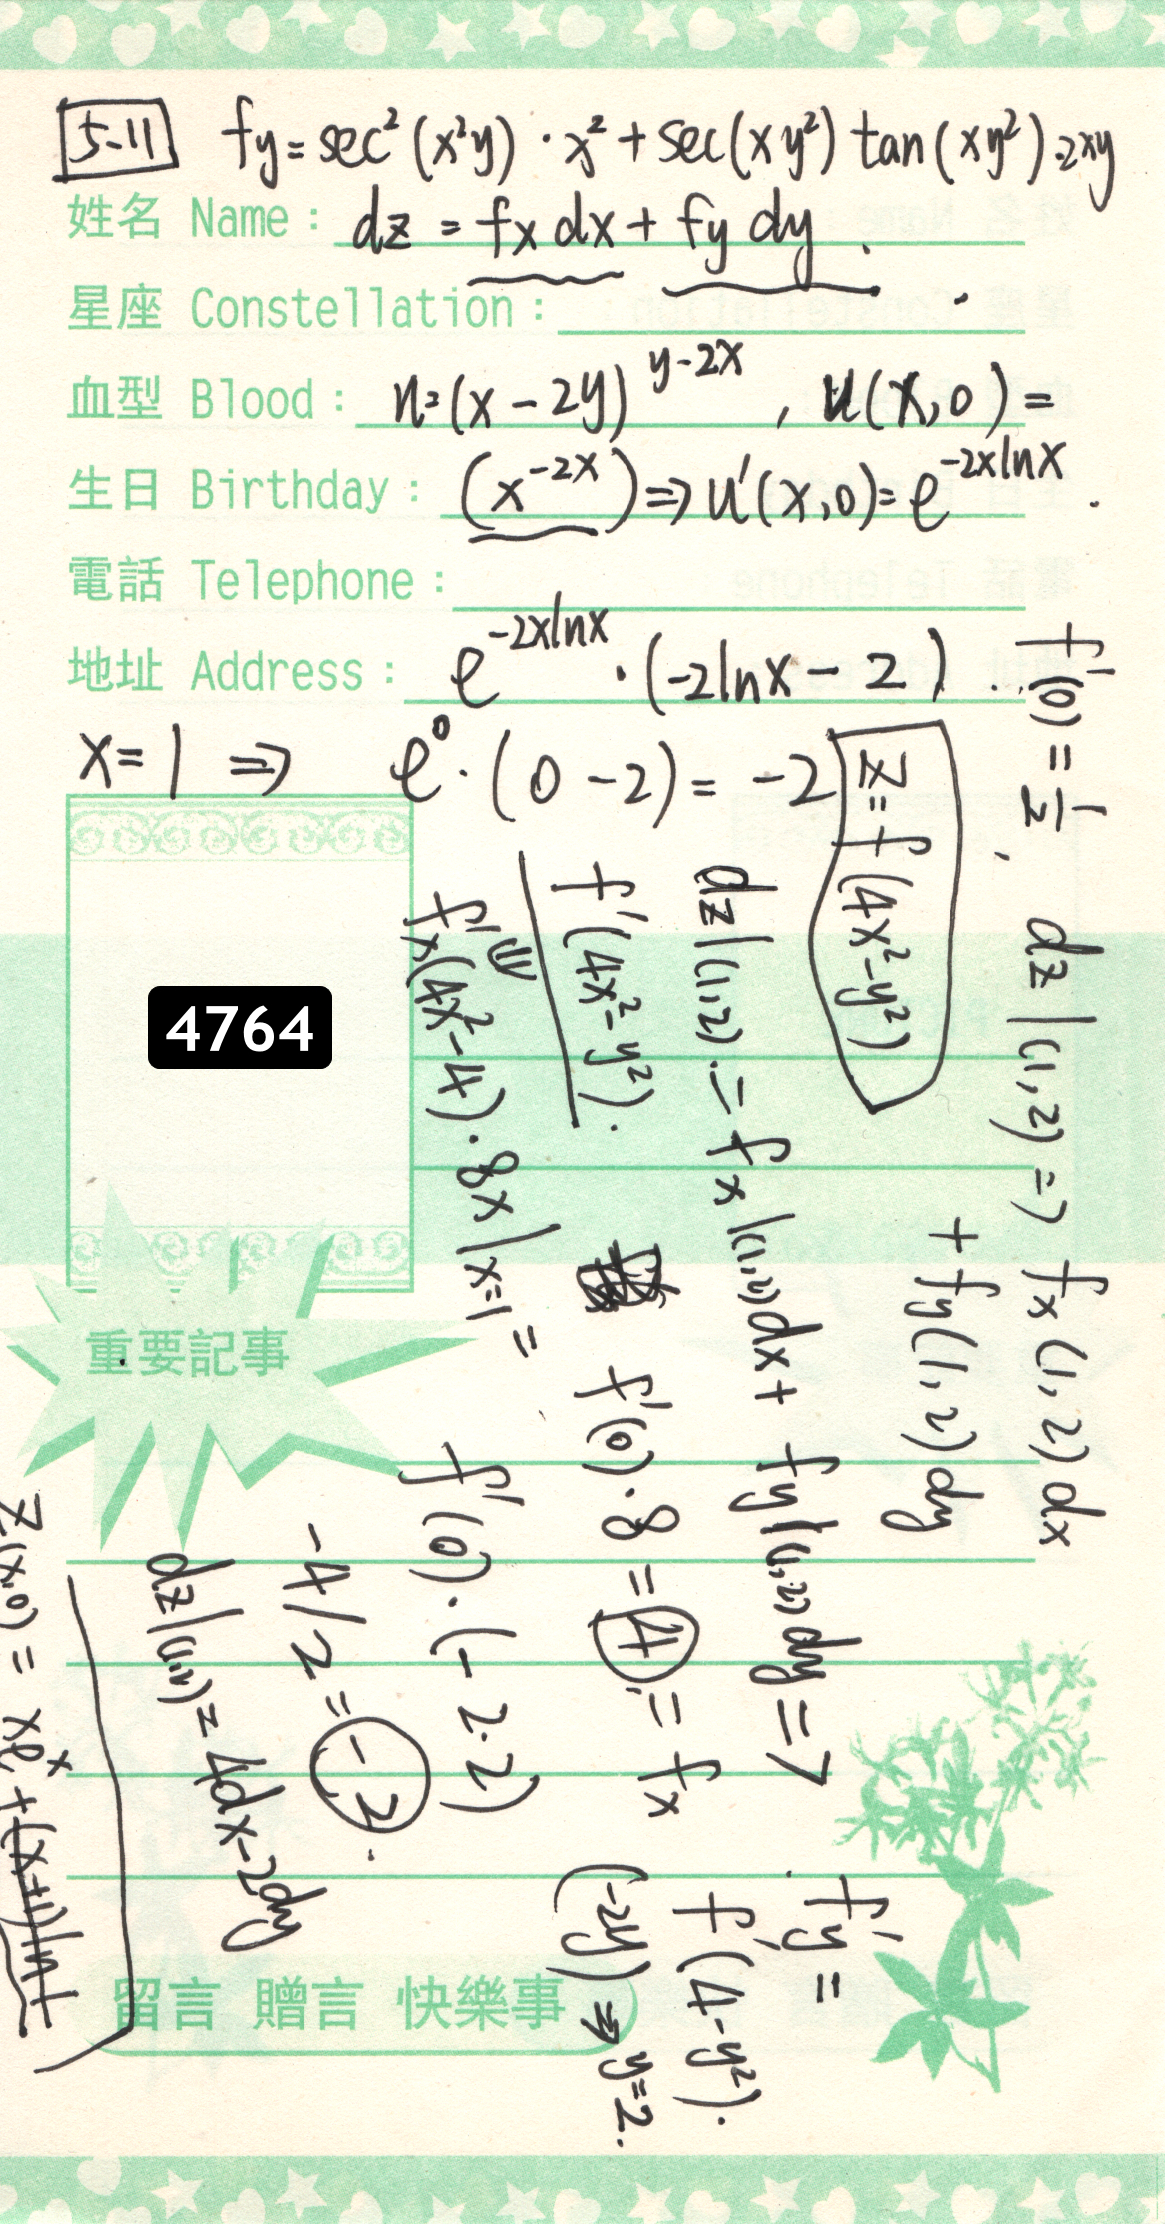 5-11 fy = sec²(x²y)·x² + sec(xy²) tan(xy²)·2xy
姓名 Name: dz = fx dx + fy dy .
星座 Constellation:
血型 Blood: u=(x-2y)^{y-2x}, u(x,0)=
生日 Birthday: (x^{-2x}) ⇒ u'(x,0)= e^{-2xlnx} .
電話 Telephone:
地址 Address: e^{-2xlnx}·(-2lnx-2)
x=1 ⇒ e⁰·(0-2)= -2
4764
f'(0)=1/2, dz|(1,2) ⇒ fx(1,2)dx
+ fy(1,2)dy
z=f(4x²-y²)
dz|(1,2) = fx|(1,2)dx + fy|(1,2)dy = ?
f'(4x²-y²).
f'x(4x²-4)·8x|x=1 =
f'(0)·8 = 4 = fx
f'y =
f'(4-y²).
(-2y) ⇒ y=2.
f'(0)·(-2·2)
-4/2 = -2.
dz|(1,2)= 4dx-2dy
z(x,0) = xe^x +
重要記事
留言 贈言 快樂事